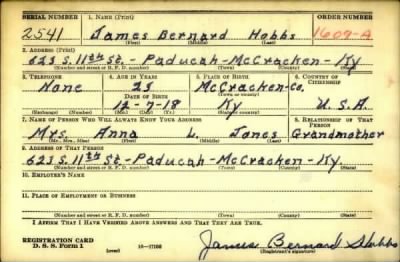 SERIAL NUMBER 1. NAME (Print) ORDER NUMBER
2541 James Bernard Hobbs 1609-A
(First) (Middle) (Last)
2. ADDRESS (Print)
623 S. 11th St. - Paducah - McCracken - Ky
(Number and street or R. F. D. number) (Town) (County) (State)
3. TELEPHONE 4. AGE IN YEARS 5. PLACE OF BIRTH 6. COUNTRY OF CITIZENSHIP
None 23 McCracken-Co.
DATE OF BIRTH (Town or county)
12-7-18 Ky U.S.A.
(Exchange) (Number) (Mo.) (Day) (Yr.) (State or country)
7. NAME OF PERSON WHO WILL ALWAYS KNOW YOUR ADDRESS 8. RELATIONSHIP OF THAT PERSON
Mrs. Anna L. Jones Grandmother
(Mr., Mrs., Miss) (First) (Middle) (Last)
9. ADDRESS OF THAT PERSON
623 S. 11th St - Paducah - McCracken - Ky.
(Number and street or R. F. D. number) (Town) (County) (State)
10. EMPLOYER'S NAME
11. PLACE OF EMPLOYMENT OR BUSINESS
(Number and street or R. F. D. number) (Town) (County) (State)
I AFFIRM THAT I HAVE VERIFIED ABOVE ANSWERS AND THAT THEY ARE TRUE.
REGISTRATION CARD
D. S. S. Form 1 (over) James Bernard Hobbs
(Registrant's signature)